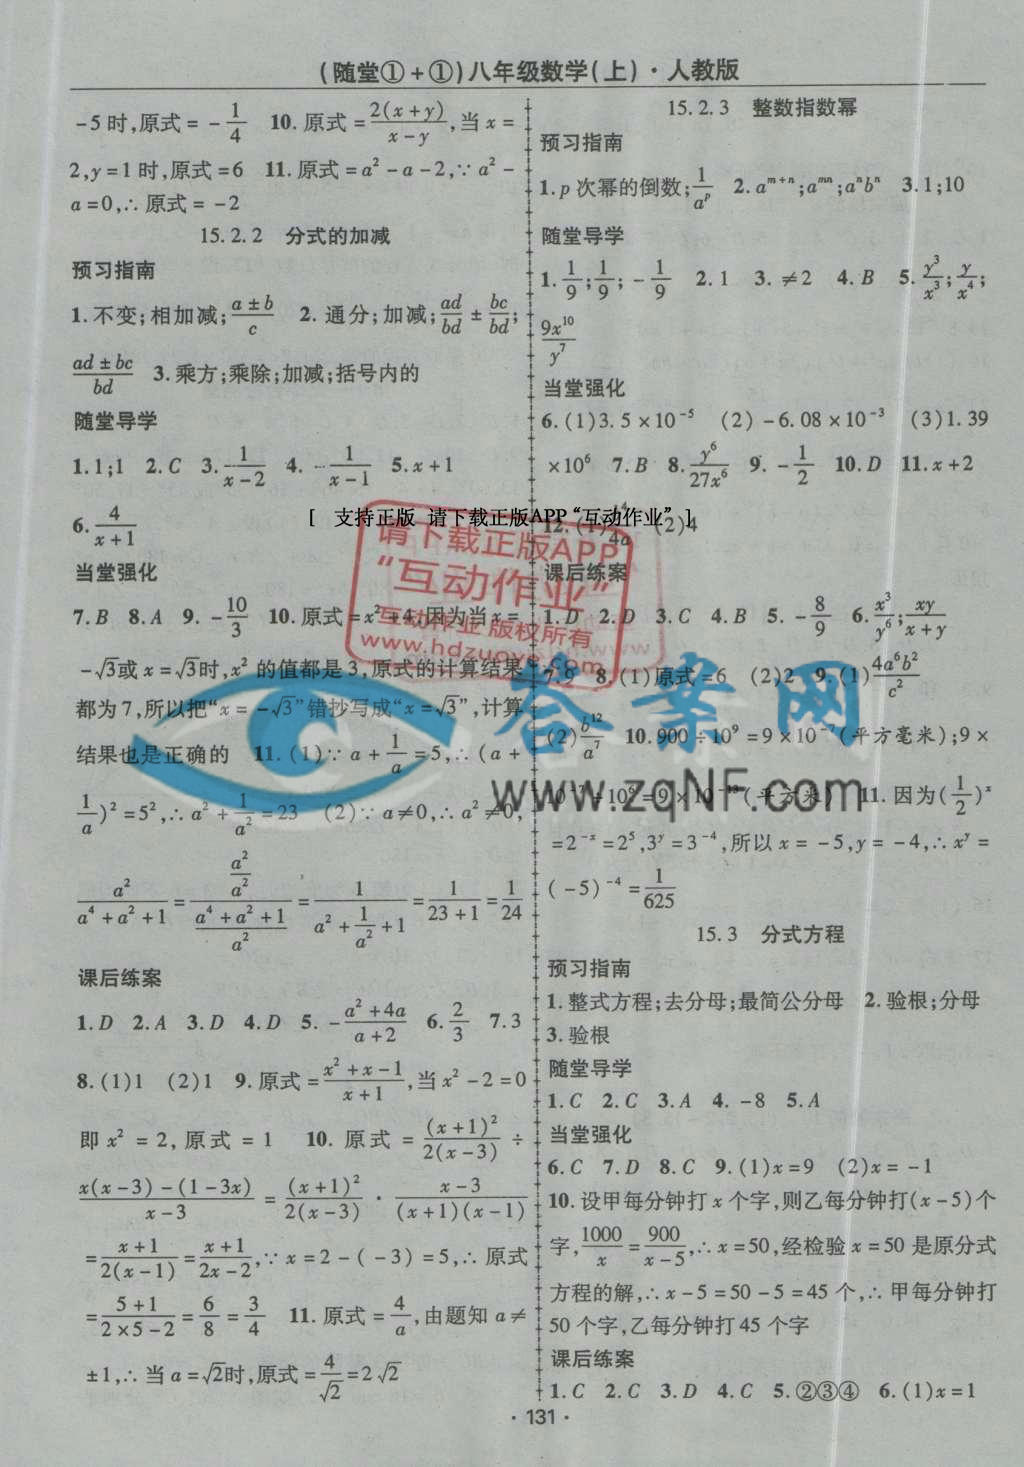 (随堂①+①)八年级数学(上)·人教版
-5时,原式= -1/4 10.原式=2(x+y)/(x-y),当x=
2,y=1时,原式=6 11.原式=a²-a-2,∵a²-
a=0,∴原式=-2
15.2.2 分式的加减
预习指南
1.不变;相加减;(a±b)/c 2.通分;加减;ad/bd±bc/bd;
(ad±bc)/bd 3.乘方;乘除;加减;括号内的
随堂导学
1.1;1 2.C 3.-1/(x-2) 4.-1/(x-1) 5.x+1
6.4/(x+1)
当堂强化
7.B 8.A 9.-10/3 10.原式=x²+4,因为当x=
-√3或x=√3时,x²的值都是3,原式的计算结果
都为7,所以把“x=-√3”错抄写成“x=√3”,计算
结果也是正确的 11.(1)∵a+1/a=5,∴(a+
1/a)²=5²,∴a²+1/a²=23 (2)∵a≠0,∴a²≠0,
a²/(a⁴+a²+1)=(a²/a²)/((a⁴+a²+1)/a²)=1/(a²+1/a²+1)=1/(23+1)=1/24
课后练案
1.D 2.A 3.D 4.D 5.-(a²+4a)/(a+2) 6.2/3 7.3
8.(1)1 (2)1 9.原式=(x²+x-1)/(x+1),当x²-2=0
即x²=2,原式=1 10.原式=(x+1)²/2(x-3)÷
(x(x-3)-(1-3x))/(x-3)=(x+1)²/2(x-3)·(x-3)/(x+1)(x-1)
=(x+1)/2(x-1)=(x+1)/(2x-2),∵x=2-(-3)=5,∴原式
=(5+1)/(2×5-2)=6/8=3/4 11.原式=4/a,由题知a≠
±1,∴当a=√2时,原式=4/√2=2√2
15.2.3 整数指数幂
预习指南
1.p次幂的倒数;1/aᵖ 2.aᵐ⁺ⁿ;aᵐⁿ;aⁿbⁿ 3.1;10
随堂导学
1.1/9;1/9;-1/9 2.1 3.≠2 4.B 5.y³/x³;y/x⁴;
9x¹⁰/y⁷
当堂强化
6.(1)3.5×10⁻⁵ (2)-6.08×10⁻³ (3)1.39
×10⁶ 7.B 8.y⁶/27x⁶ 9.-1/2 10.D 11.x+2
12.(1) /4a (2)4
课后练案
1.D 2.D 3.C 4.B 5.-8/9 6.x³/y⁶;xy/(x+y)
7.9 8.(1)原式=6 (2)2 9.(1)4a⁶b²/c²
(2)b¹²/a⁷ 10.900÷10⁹=9×10⁻⁷(平方毫米);9×
=9×10 (平方米) 11.因为(1/2)ˣ
=2⁻ˣ=2⁵,3ʸ=3⁻⁴,所以x=-5,y=-4,∴xʸ=
(-5)⁻⁴=1/625
15.3 分式方程
预习指南
1.整式方程;去分母;最简公分母 2.验根;分母
3.验根
随堂导学
1.C 2.C 3.A 4.-8 5.A
当堂强化
6.C 7.D 8.C 9.(1)x=9 (2)x=-1
10.设甲每分钟打x个字,则乙每分钟打(x-5)个
字,1000/x=900/(x-5),∴x=50,经检验x=50是原分式
方程的解,∴x-5=50-5=45个,∴甲每分钟打
50个字,乙每分钟打45个字
课后练案
1.C 2.C 3.D 4.C 5.②③④ 6.(1)x=1
·131·
[ 支持正版 请下载正版APP“互动作业” ]
请下载正版APP
“互动作业”
互动作业 版权所有
www.hdzuoye.com
答案网
www.zqNF.com